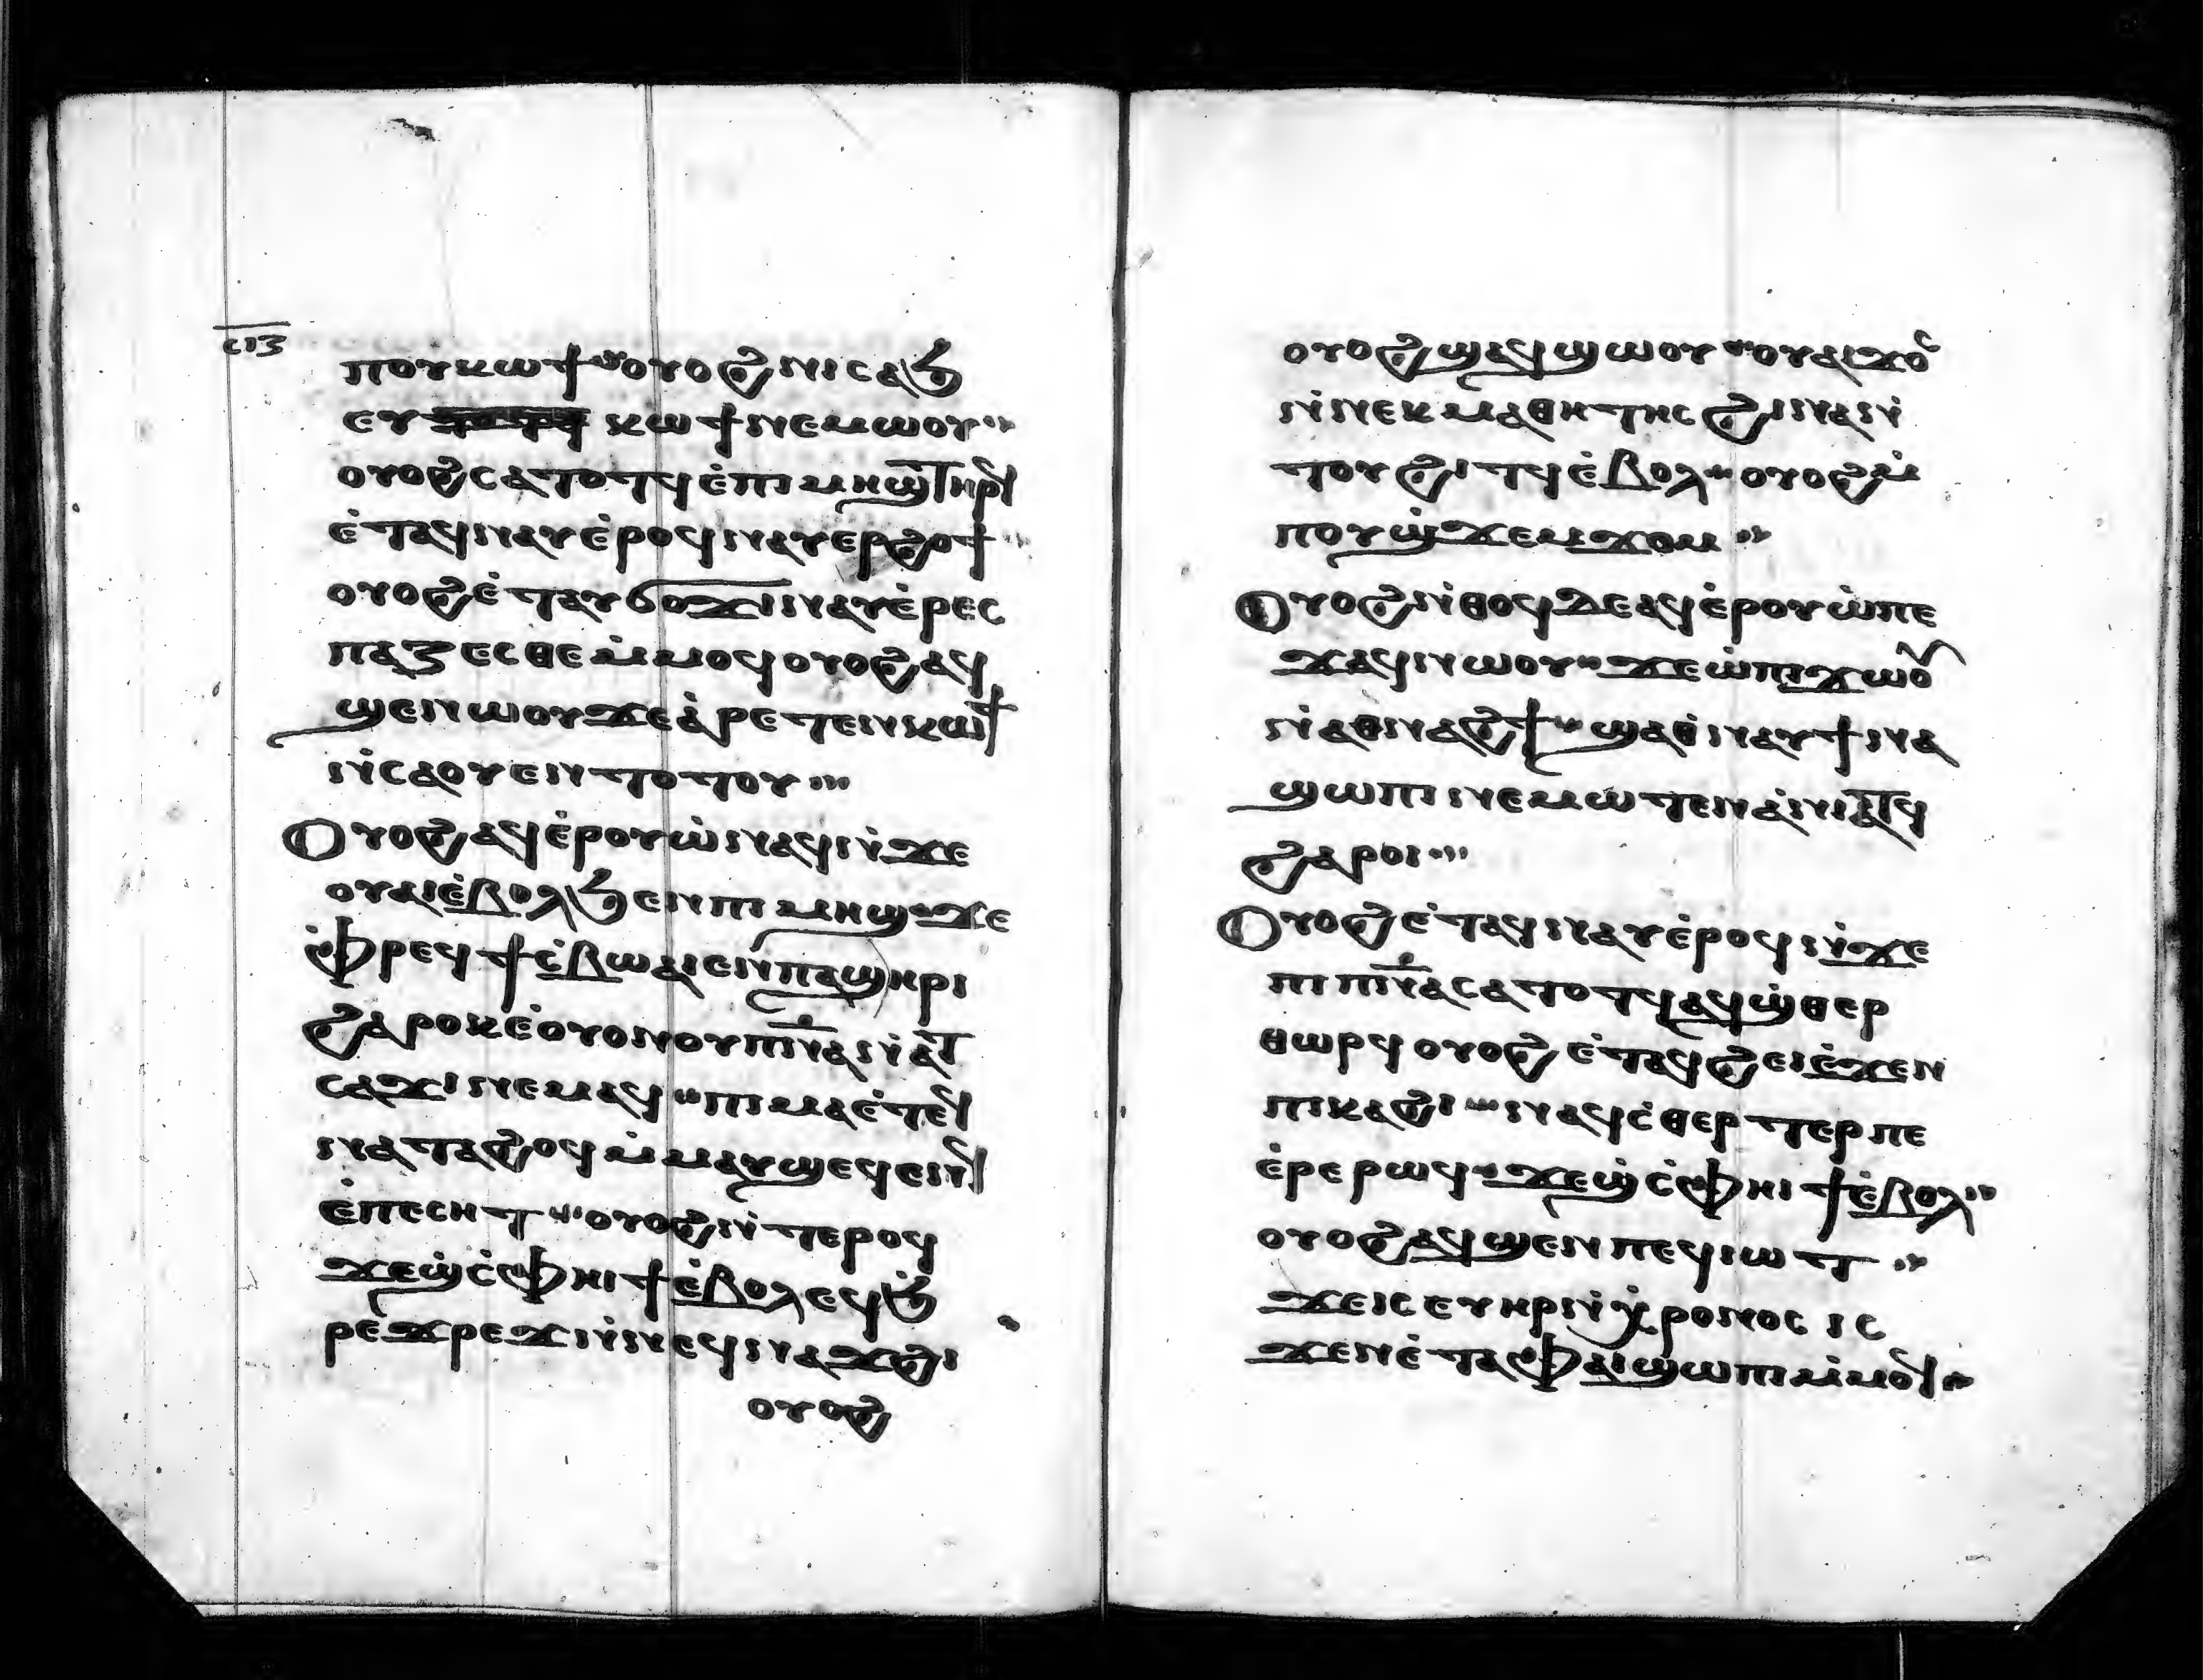 ⲥⲓⲍ
ⲡⲟⲩⲕⲱϯ ⲟⲩⲟϩ ⲛⲓⲥⲁϧ
ⲉⲩ ⲕⲱϯ ⲛⲉⲙⲱⲟⲩ
ⲟⲩⲟϩ ⲥⲁⲧⲟⲧϥ ⲉ̇ⲡⲓⲙⲏϣ ⲧⲏⲣϥ
ⲉ̇ⲧⲁϥⲛⲁⲩ ⲉ̇ⲣⲟϥ ⲛⲁⲩⲉⲣϩⲟϯ
ⲟⲩⲟϩ ⲉ̇ⲧⲁⲩϭⲟϫⲓ ⲛⲁⲩⲉ̇ⲣⲉⲥ
ⲡⲁⲍⲉⲥⲑⲉ ⲙⲙⲟϥ ⲟⲩⲟϩ ⲁϥ
ϣⲉⲛⲱⲟⲩ ϫⲉ ⲁ̇ⲣⲉⲧⲉⲛⲕⲱϯ
ⲛ̇ⲥⲁ ⲟⲩ ⲉⲛⲧⲟⲧⲟⲩ
Ⲟⲩⲟϩ ⲁϥⲉ̇ⲣⲟⲩⲱ̇ ⲛⲁϥ ⲛ̇ϫⲉ
ⲟⲩⲁⲓ ⲉ̇ⲃⲟⲗϧⲉⲛ ⲡⲓⲙⲏϣ ϫⲉ
ⲫ̇ⲣⲉϥϯⲥ̇ⲃⲱ ⲁⲓⲉⲛ ⲡⲁϣⲏⲣⲓ
ϩⲁⲣⲟⲕ ⲉ̇ⲟⲩⲟⲛ ⲟⲩⲡⲛ̅ⲁ ⲛ̇ⲁⲧ
ⲥⲁϫⲓ ⲛⲉⲙⲁϥ ⲡⲓⲙⲁ ⲉ̇ⲧⲉϥ
ⲛⲁⲧⲁϩⲟϥ ⲙ̇ⲙⲁⲩ ϣⲉϥⲉⲛϥ
ⲉ̇ⲡⲉⲥⲏⲧ ⲟⲩⲟϩ ⲛ̇ⲧⲉⲣⲟϥ
ϫⲉϣ̇ ⲥ̇ⲫⲏⲓϯ ⲉ̇ⲃⲟⲗ ⲉϥϧ̇
ⲣⲉϫⲣⲉϫ ⲛ̇ⲛⲉϥⲛⲁϫϩⲓ
ⲟⲩⲟϩ
ⲟⲩⲟϩ ϣⲁϥϣⲱⲟⲩ ⲟⲩⲁⲓϫⲟⲥ
ⲛ̇ⲛⲉⲕⲙⲁⲑⲏⲧⲏⲥ ϩⲓⲛⲁ ⲛ̇
ⲧⲟⲩϩⲓⲧϥ ⲉ̇ⲃⲟⲗ ⲟⲩⲟϩ ⲙ̇
ⲡⲟⲩϣ̇ϫⲉⲙϫⲟⲙ
Ⲟⲩⲟϩ ⲛ̇ⲑⲟϥ ⲇⲉ ⲁϥⲉ̇ⲣⲟⲩⲱ̇ ⲡⲉ
ϫⲁϥ ⲛⲱⲟⲩ ϫⲉ ⲱ̇ ⲡⲓϫⲱⲟⲩ
ⲛ̇ⲁⲑⲛⲁϩϯ ϣⲁ ⲑ̇ⲛⲁⲩ ϯⲛⲁ
ϣⲱⲡⲓ ⲛⲉⲙⲱⲧⲉⲛ ⲁ̇ⲛⲓⲧϥ
ϩⲁⲣⲟⲓ
Ⲟⲩⲟϩ ⲉ̇ⲧⲁϥⲛⲁⲩ ⲉ̇ⲣⲟϥ ⲛ̇ϫⲉ
ⲡⲓⲡⲛ̅ⲁ ⲥⲁⲧⲟⲧϥ ⲁϥϣ̇ⲑⲉⲣ
ⲑⲱⲣϥ ⲟⲩⲟϩ ⲉ̇ⲧⲁϥϩⲉⲓ ⲉ̇ϫⲉⲛ
ⲡⲓⲕⲁϩⲓ ⲛⲁϥⲥ̇ⲑⲉⲣⲧⲉⲣ ⲡⲉ
ⲉ̇ⲣⲉ ⲣⲱϥ ϫⲉϣ̇ ⲥ̇ⲫⲏⲓϯ ⲉ̇ⲃⲟⲗ
ⲟⲩⲟϩ ⲁϥϣⲉⲛ ⲡⲉϥⲓⲱⲧ
ϫⲉ ⲓⲥ ⲉⲩⲏⲣ ⲛ̇ⲭⲣⲟⲛⲟⲥ ⲓⲥ
ϫⲉⲛ ⲉ̇ⲧⲁ ⲫⲁⲓ ϣⲱⲡⲓ ⲙ̇ⲙⲟϥ